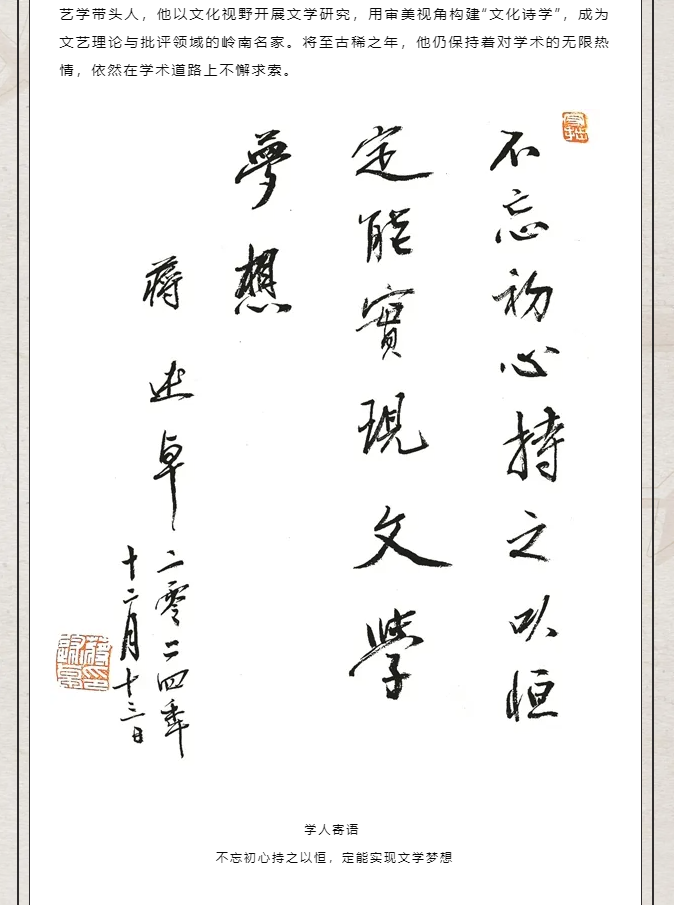 艺学带头人，他以文化视野开展文学研究，用审美视角构建“文化诗学”，成为
文艺理论与批评领域的岭南名家。将至古稀之年，他仍保持着对学术的无限热
情，依然在学术道路上不懈求索。
不忘初心持之以恒
定能實現文學
夢想
蔣述卓
二零二四年
十二月十三日
学人寄语
不忘初心持之以恒，定能实现文学梦想